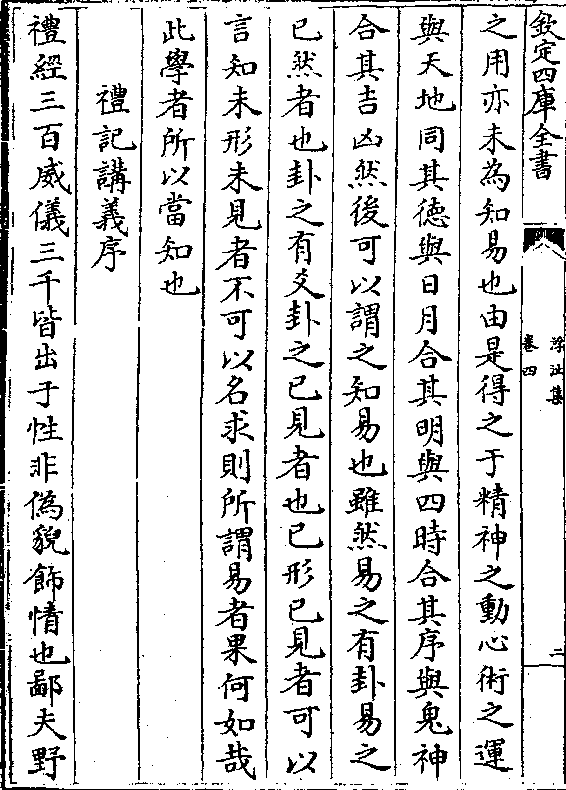 欽定四庫全書
浮沚集
卷四
二
之用亦未為知易也由是得之于精神之動心術之運
與天地同其徳與日月合其明與四時合其序與鬼神
合其吉凶然後可以謂之知易也雖然易之有卦易之
已然者也卦之有爻卦之已見者也已形已見者可以
言知未形未見者不可以名求則所謂易者果何如哉
此學者所以當知也
禮記講義序
禮經三百威儀三千皆出于性非偽貌飾情也鄙夫野